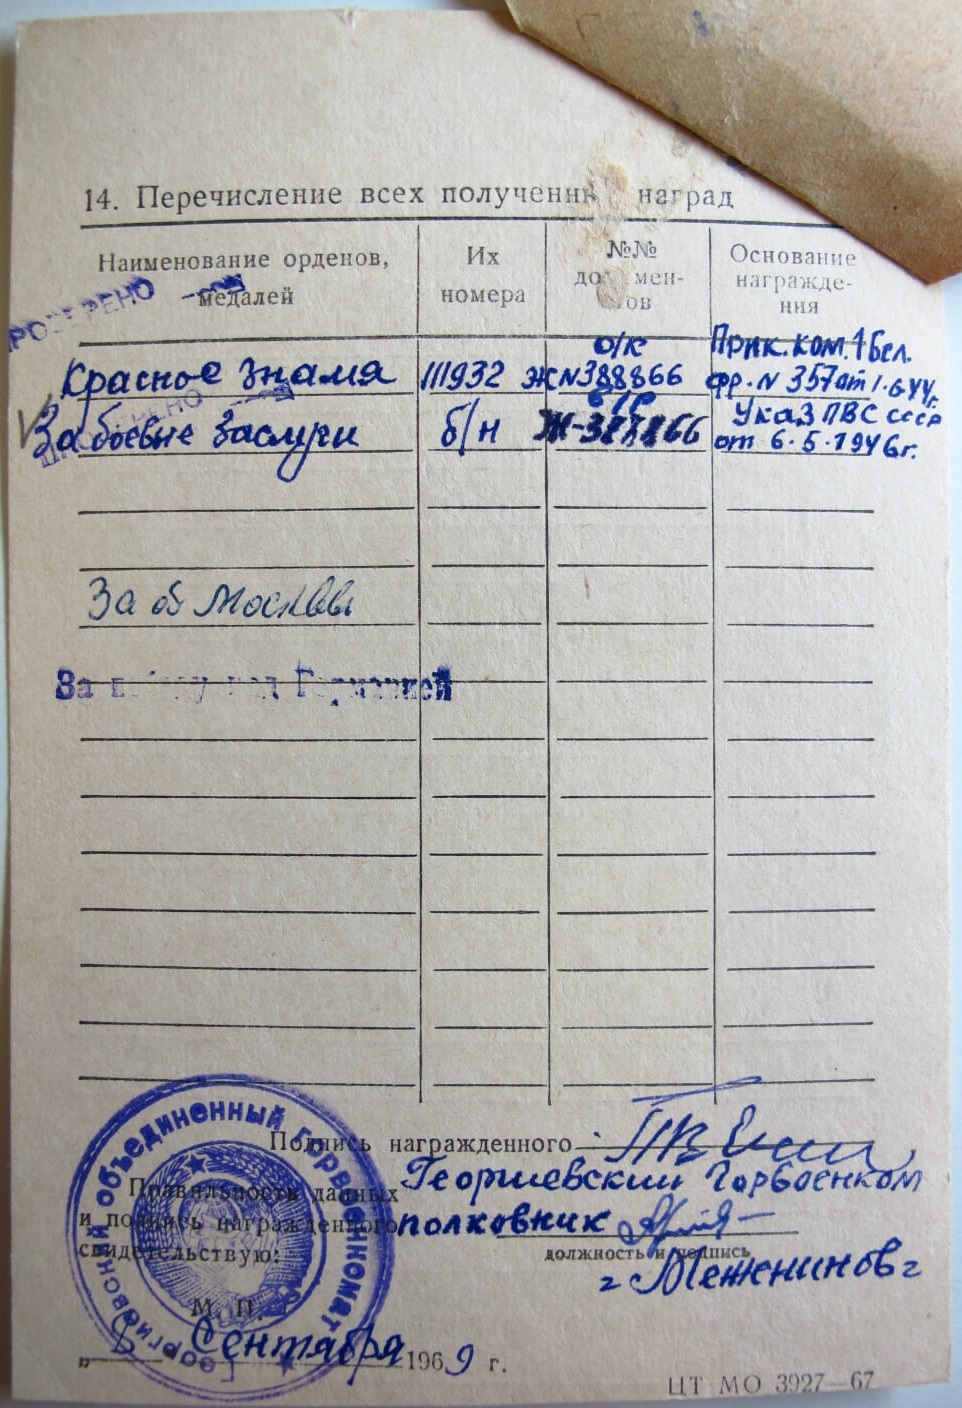 14. Перечисление всех полученн наград
Наименование орденов, медалей
Их номера
№№
Основание награжде-ния
ПРОВЕРЕНО
о/к
Прик. ком. 1 Бел.
Красное Знамя 111932 Ж№388866 фр. N 357 от 1.6.44г.
Указ ПВС СССР
За боевые Заслуги б/н от 6.5.1946г.
За об Москвы
За над Германией
Подпись награжденного
Правильность данных Георгиевский Горвоенком
и подпись награжденного полковник
свидетельствую:
должность и подпись
г Меженинов г
М. П.
Георгиевский объединенный горвоенкомат
„8 Сентября 1969 г.
ЦТ МО 3927—67